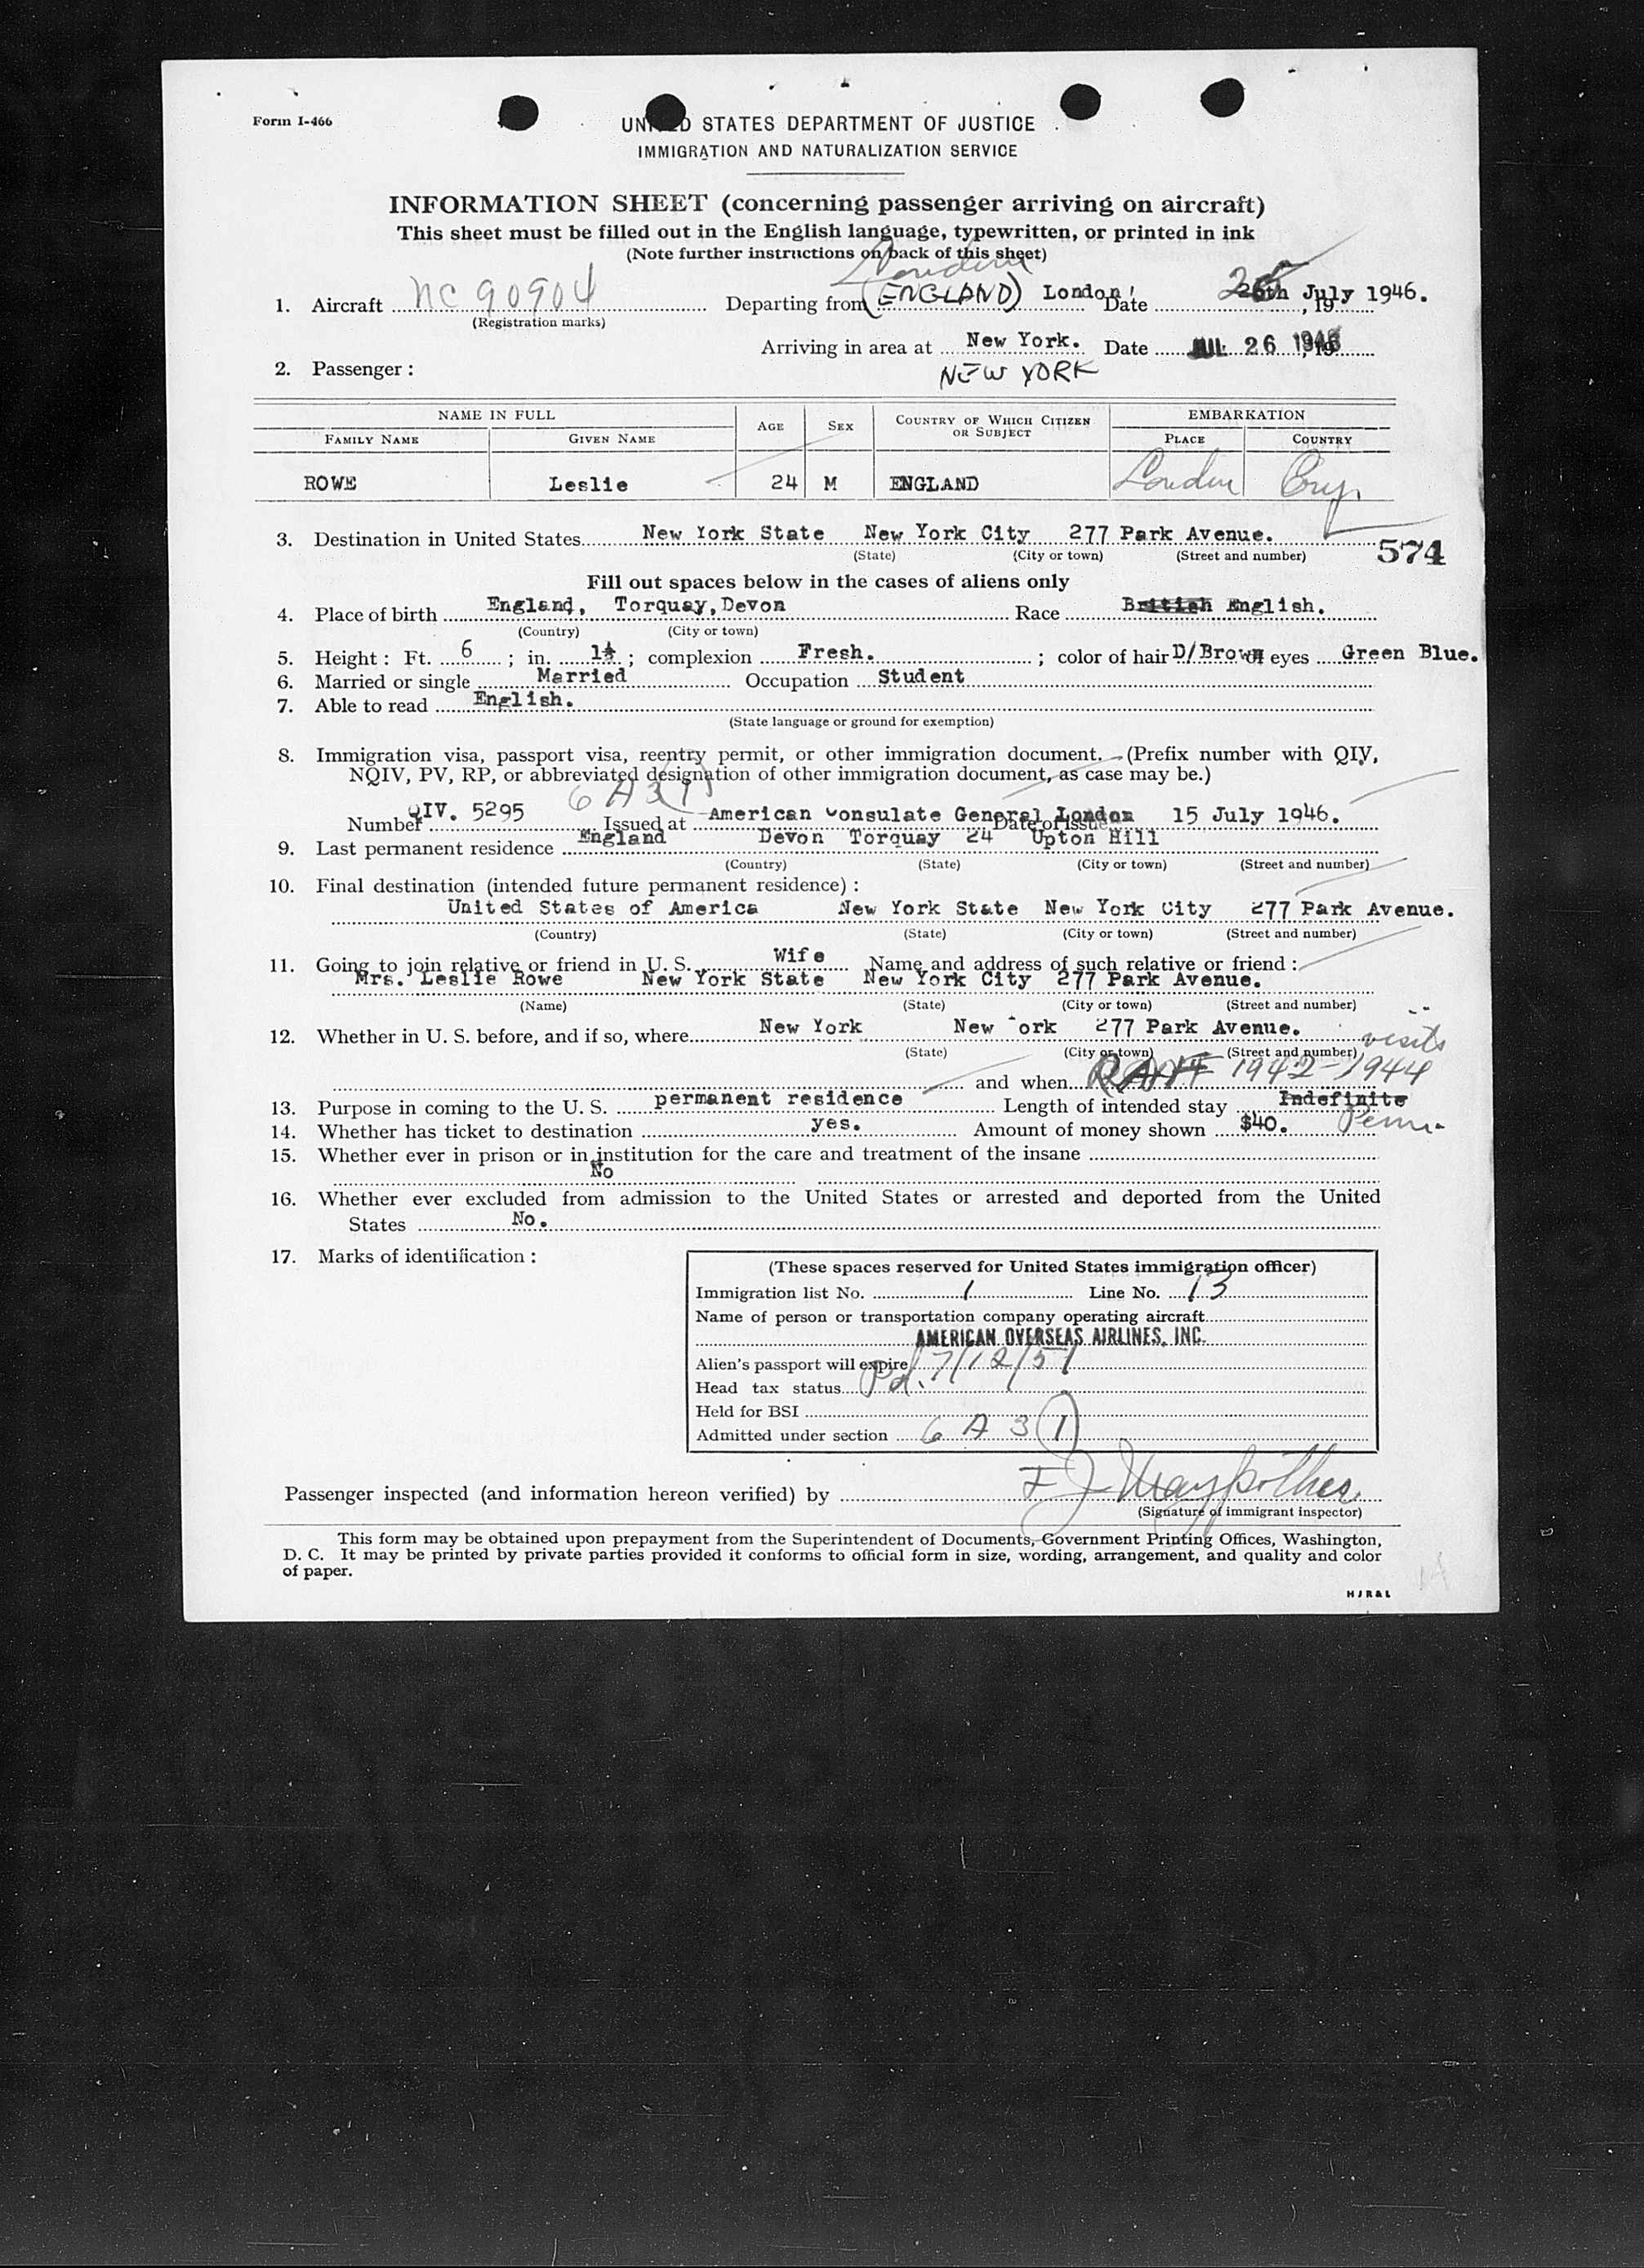 Form I-466
UNITED STATES DEPARTMENT OF JUSTICE
IMMIGRATION AND NATURALIZATION SERVICE
INFORMATION SHEET (concerning passenger arriving on aircraft)
This sheet must be filled out in the English language, typewritten, or printed in ink
(Note further instructions on back of this sheet)
London
1. Aircraft NC 90904 Departing from (ENGLAND) London Date 26th July 1946.
(Registration marks)
Arriving in area at New York. Date JUL 26 1946
2. Passenger : NEW YORK
NAME IN FULL AGE SEX COUNTRY OF WHICH CITIZEN OR SUBJECT EMBARKATION
FAMILY NAME GIVEN NAME PLACE COUNTRY
ROWE Leslie 24 M ENGLAND London Eng.
3. Destination in United States New York State New York City 277 Park Avenue. 574
(State) (City or town) (Street and number)
Fill out spaces below in the cases of aliens only
4. Place of birth England, Torquay, Devon Race British English.
(Country) (City or town)
5. Height : Ft. 6 ; in. 1½ ; complexion Fresh. ; color of hair D/Brown of eyes Green Blue.
6. Married or single Married Occupation Student
7. Able to read English.
(State language or ground for exemption)
8. Immigration visa, passport visa, reentry permit, or other immigration document. (Prefix number with QIV,
NQIV, PV, RP, or abbreviated designation of other immigration document, as case may be.)
6 A 3(1)
Number QIV. 5295 Issued at American Consulate General London Date of issue 15 July 1946.
9. Last permanent residence England Devon Torquay 24 Upton Hill
(Country) (State) (City or town) (Street and number)
10. Final destination (intended future permanent residence) :
United States of America New York State New York City 277 Park Avenue.
(Country) (State) (City or town) (Street and number)
11. Going to join relative or friend in U. S. Wife Name and address of such relative or friend :
Mrs. Leslie Rowe New York State New York City 277 Park Avenue.
(Name) (State) (City or town) (Street and number)
12. Whether in U. S. before, and if so, where New York New York 277 Park Avenue. visits
(State) (City or town) (Street and number)
and when 1942-1944
13. Purpose in coming to the U. S. permanent residence Length of intended stay Indefinite
14. Whether has ticket to destination yes. Amount of money shown $40. Perm.
15. Whether ever in prison or in institution for the care and treatment of the insane
No
16. Whether ever excluded from admission to the United States or arrested and deported from the United
States No.
17. Marks of identification :
(These spaces reserved for United States immigration officer)
Immigration list No. 1 Line No. 13
Name of person or transportation company operating aircraft
AMERICAN OVERSEAS AIRLINES, INC.
Alien's passport will expire 7/12/51
Head tax status Pd.
Held for BSI
Admitted under section 6 A 3 (1)
Passenger inspected (and information hereon verified) by F J
(Signature of immigrant inspector)
This form may be obtained upon prepayment from the Superintendent of Documents, Government Printing Offices, Washington,
D. C. It may be printed by private parties provided it conforms to official form in size, wording, arrangement, and quality and color
of paper.
HJR&L